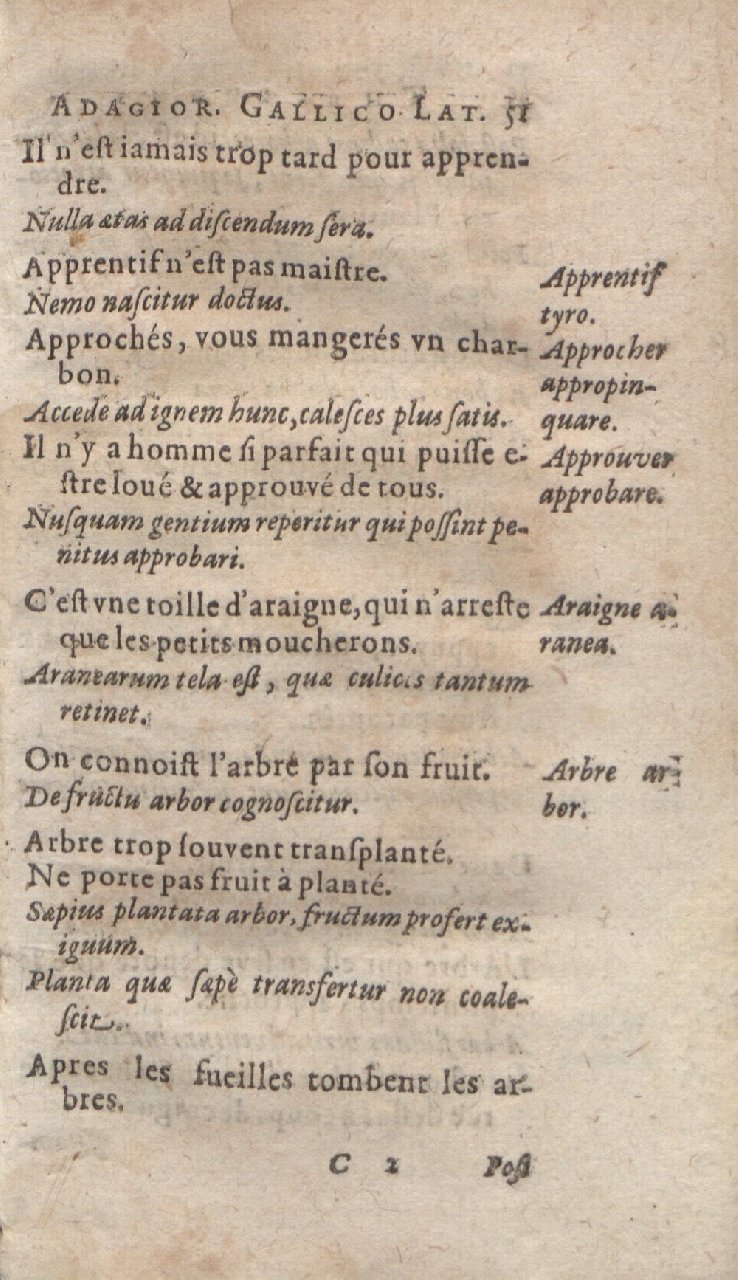 ADAGIOR. GALLICO LAT. 51
Il n'eſt iamais trop tard pour appren-
dre.
Nulla ætas ad diſcendum ſera.
Apprentif n'eſt pas maiſtre.
Nemo naſcitur doctus.
Approchés, vous mangerés vn char-
bon.
Accede ad ignem hunc, caleſces plus ſatis.
Il n'y a homme ſi parfait qui puiſſe e-
ſtre loué & approuvé de tous.
Nuſquam gentium reperitur qui poſſint pe-
nitus approbari.
C'eſt vne toille d'araigne, qui n'arreſte
que les petits moucherons.
Aranearum tela eſt, quæ culices tantum
retinet.
On connoiſt l'arbre par ſon fruit.
De fructu arbor cognoſcitur.
Arbre trop ſouvent tranſplanté.
Ne porte pas fruit à planté.
Sæpius plantata arbor, fructum profert ex-
iguum.
Planta quæ ſæpè transfertur non coale-
ſcit.
Apres les fueilles tombent les ar-
bres.
C 2 Poſt
Apprentif
tyro.
Approcher
appropin-
quare.
Approuver
approbare.
Araigne a-
ranea.
Arbre ar-
bor.